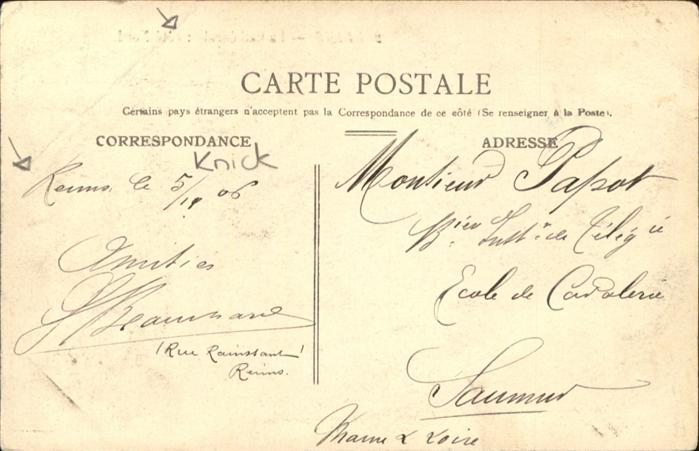 CARTE POSTALE
Certains pays étrangers n'acceptent pas la Correspondance de ce côté (Se renseigner à la Poste).
CORRESPONDANCE
Knick
Reims le 5/18 06
Amitiés
(Rue Rainssant)
Reims.
ADRESSE
Monsieur Papot
Instr de Télég ie
Ecole de Cavalerie
Saumur
Maine & Loire